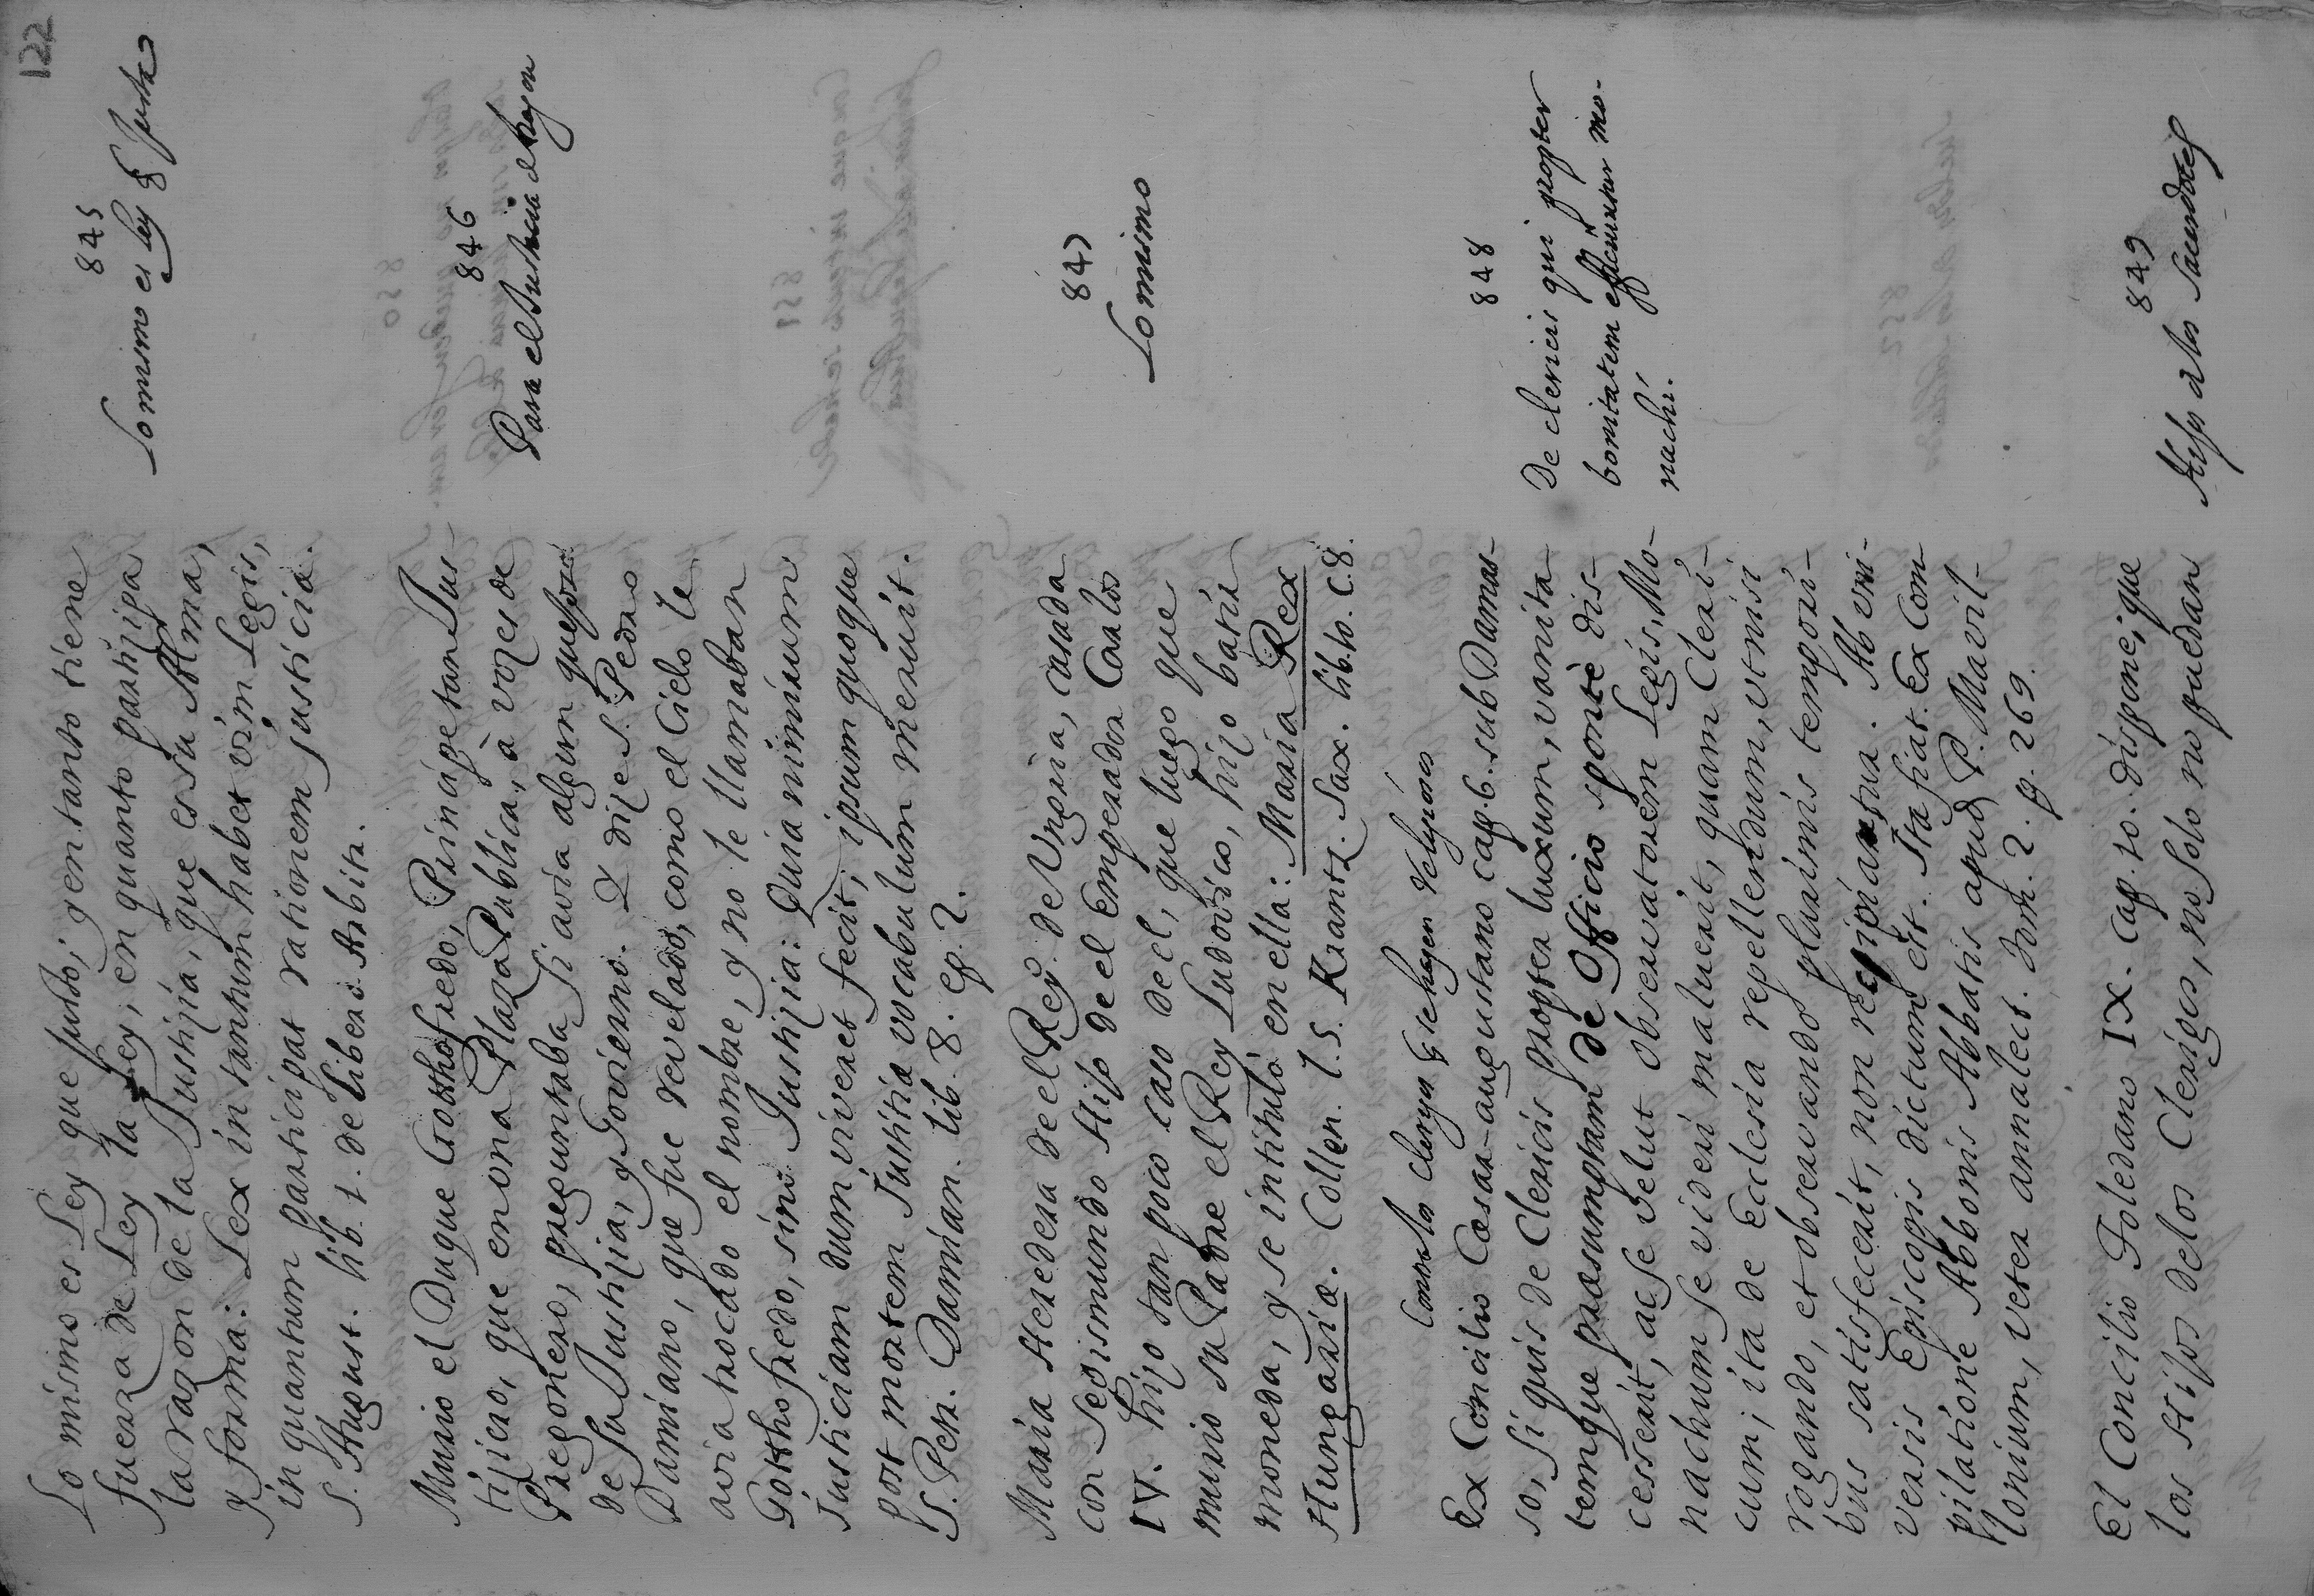 122
Lo mismo es Ley que Justo; y en tanto tiene
fuerza de Ley la Ley, en quanto partizipa
la razon de la Justizia, que es su Alma,
y forma: Lex in tantum habet vim Legis,
in quantum participat rationem justiciæ.
S. August. lib. 1. de liber. Arbitr.
845
Lo mismo es ley q Justa
Murio el Duque Gotthofredo, Principe tan Jus-
tiziero, que en una Plaza Publica, à vozes de
Pregonero, preguntaba si avia algun quejoso
de su Justizia, y Govierno. Y dize S. Pedro
Damiano, que fue revelado, como el Cielo le
avia trocado el nombre, y no le llamaban
Gotthofredo, sino Justizia: Quia nimirum
Justiciam dum viveret fecit, ipsum quoque
post mortem Justitiæ vocabulum meruit.
S. Petr. Damian. lib. 8. Ep. 2.
846
Para el Justicia de Aragon
Maria Heredera de el Rey de Ungria, casada
con Segismundo Hijo de el Emperador Carlos
IV. hizo tan poco caso de el, que luego que
murio su Padre el Rey Ludovico, hizo batir
moneda, y se intitulò en ella: Maria Rex
Hungariæ. Collen. l. 5. Krantz. Sax. lib. 10. C. 8.
847
Lo mismo
Contra los clerigos q se hazen Religiosos
Ex Concilio Cæsar-augustano cap. 6. sub Damas-
so, si quis de Clericis propter luxum, vanita-
temque præsumptam de Officio spontè dis-
cesserit, ac se velut observatorem Legis, Mo-
nachum se videri maluerit, quam Cleri-
cum; ita de Ecclesia repellendum, ut nisi
rogando, et observando plurimis tempori-
bus satisfecerit, non recipiatur. Ab uni-
versis Episcopis dictum est. Ita fiat. Ex Com-
pilatione Abbonis Abbatis apud P. Mavil-
lonium, veter annalect. Tom. 2. p. 269.
848
De clericis qui propter
bonitatem efficiuntur mo-
nachi.
El Concilio Toledano IX. cap. 10. dispone, que
los Hijos de los Clerigos, no solo no puedan
849
Hijos de los Sacerdotes